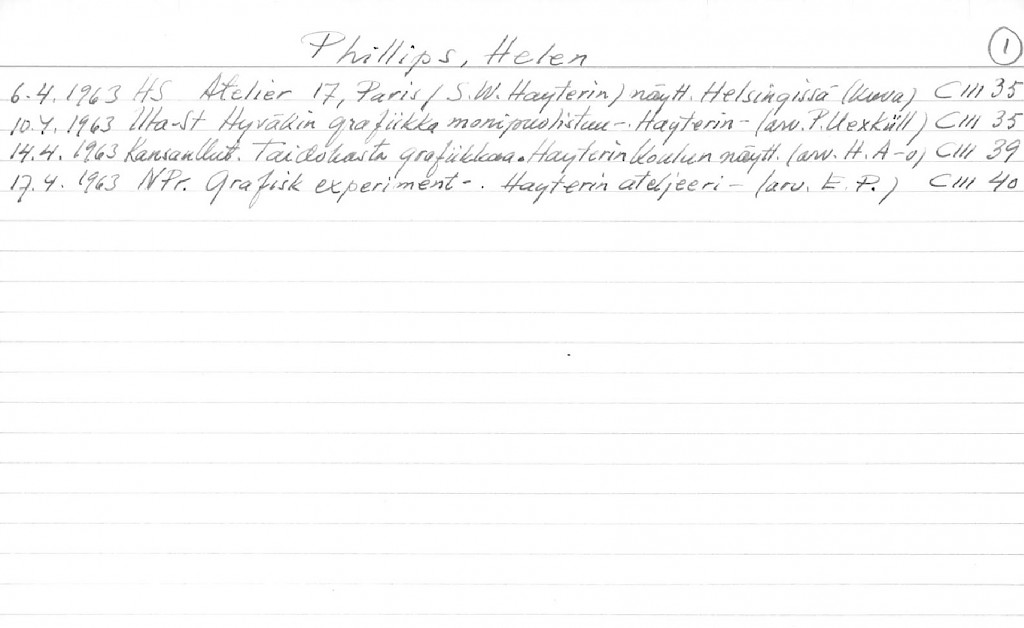 Phillips, Helen
1
6.4.1963 HS Atelier 17, Paris (S.W. Hayterin) näytt. Helsingissä (kuva) CIII 35
10.4.1963 Uta-St Hyväkin grafiikka monipuolistuu-. Hayterin- (arv. P. Uexküll) CIII 35
14.4.1963 Kansanllut. Taidokasta grafiikkaa. Hayterin koulun näytt. (arv. H. A-o) CIII 39
17.4.1963 NPr. Grafisk experiment-. Hayterin ateljeeri- (arv. E. P.) CIII 40